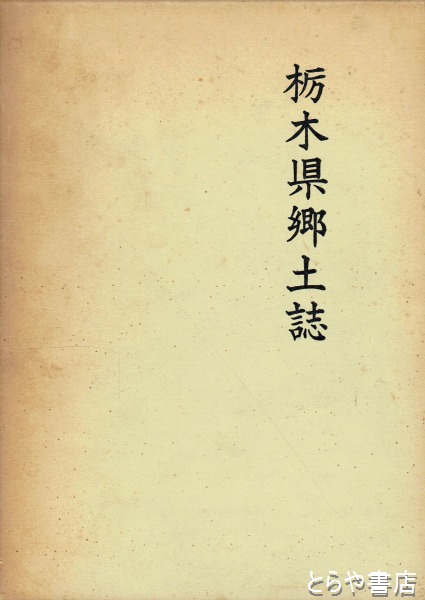 栃木県郷土誌
とらや書店